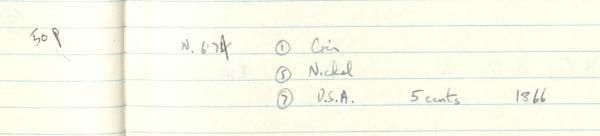 50p
① Coin
⑤ Nickel
⑦ U.S.A. 5 cents 1866